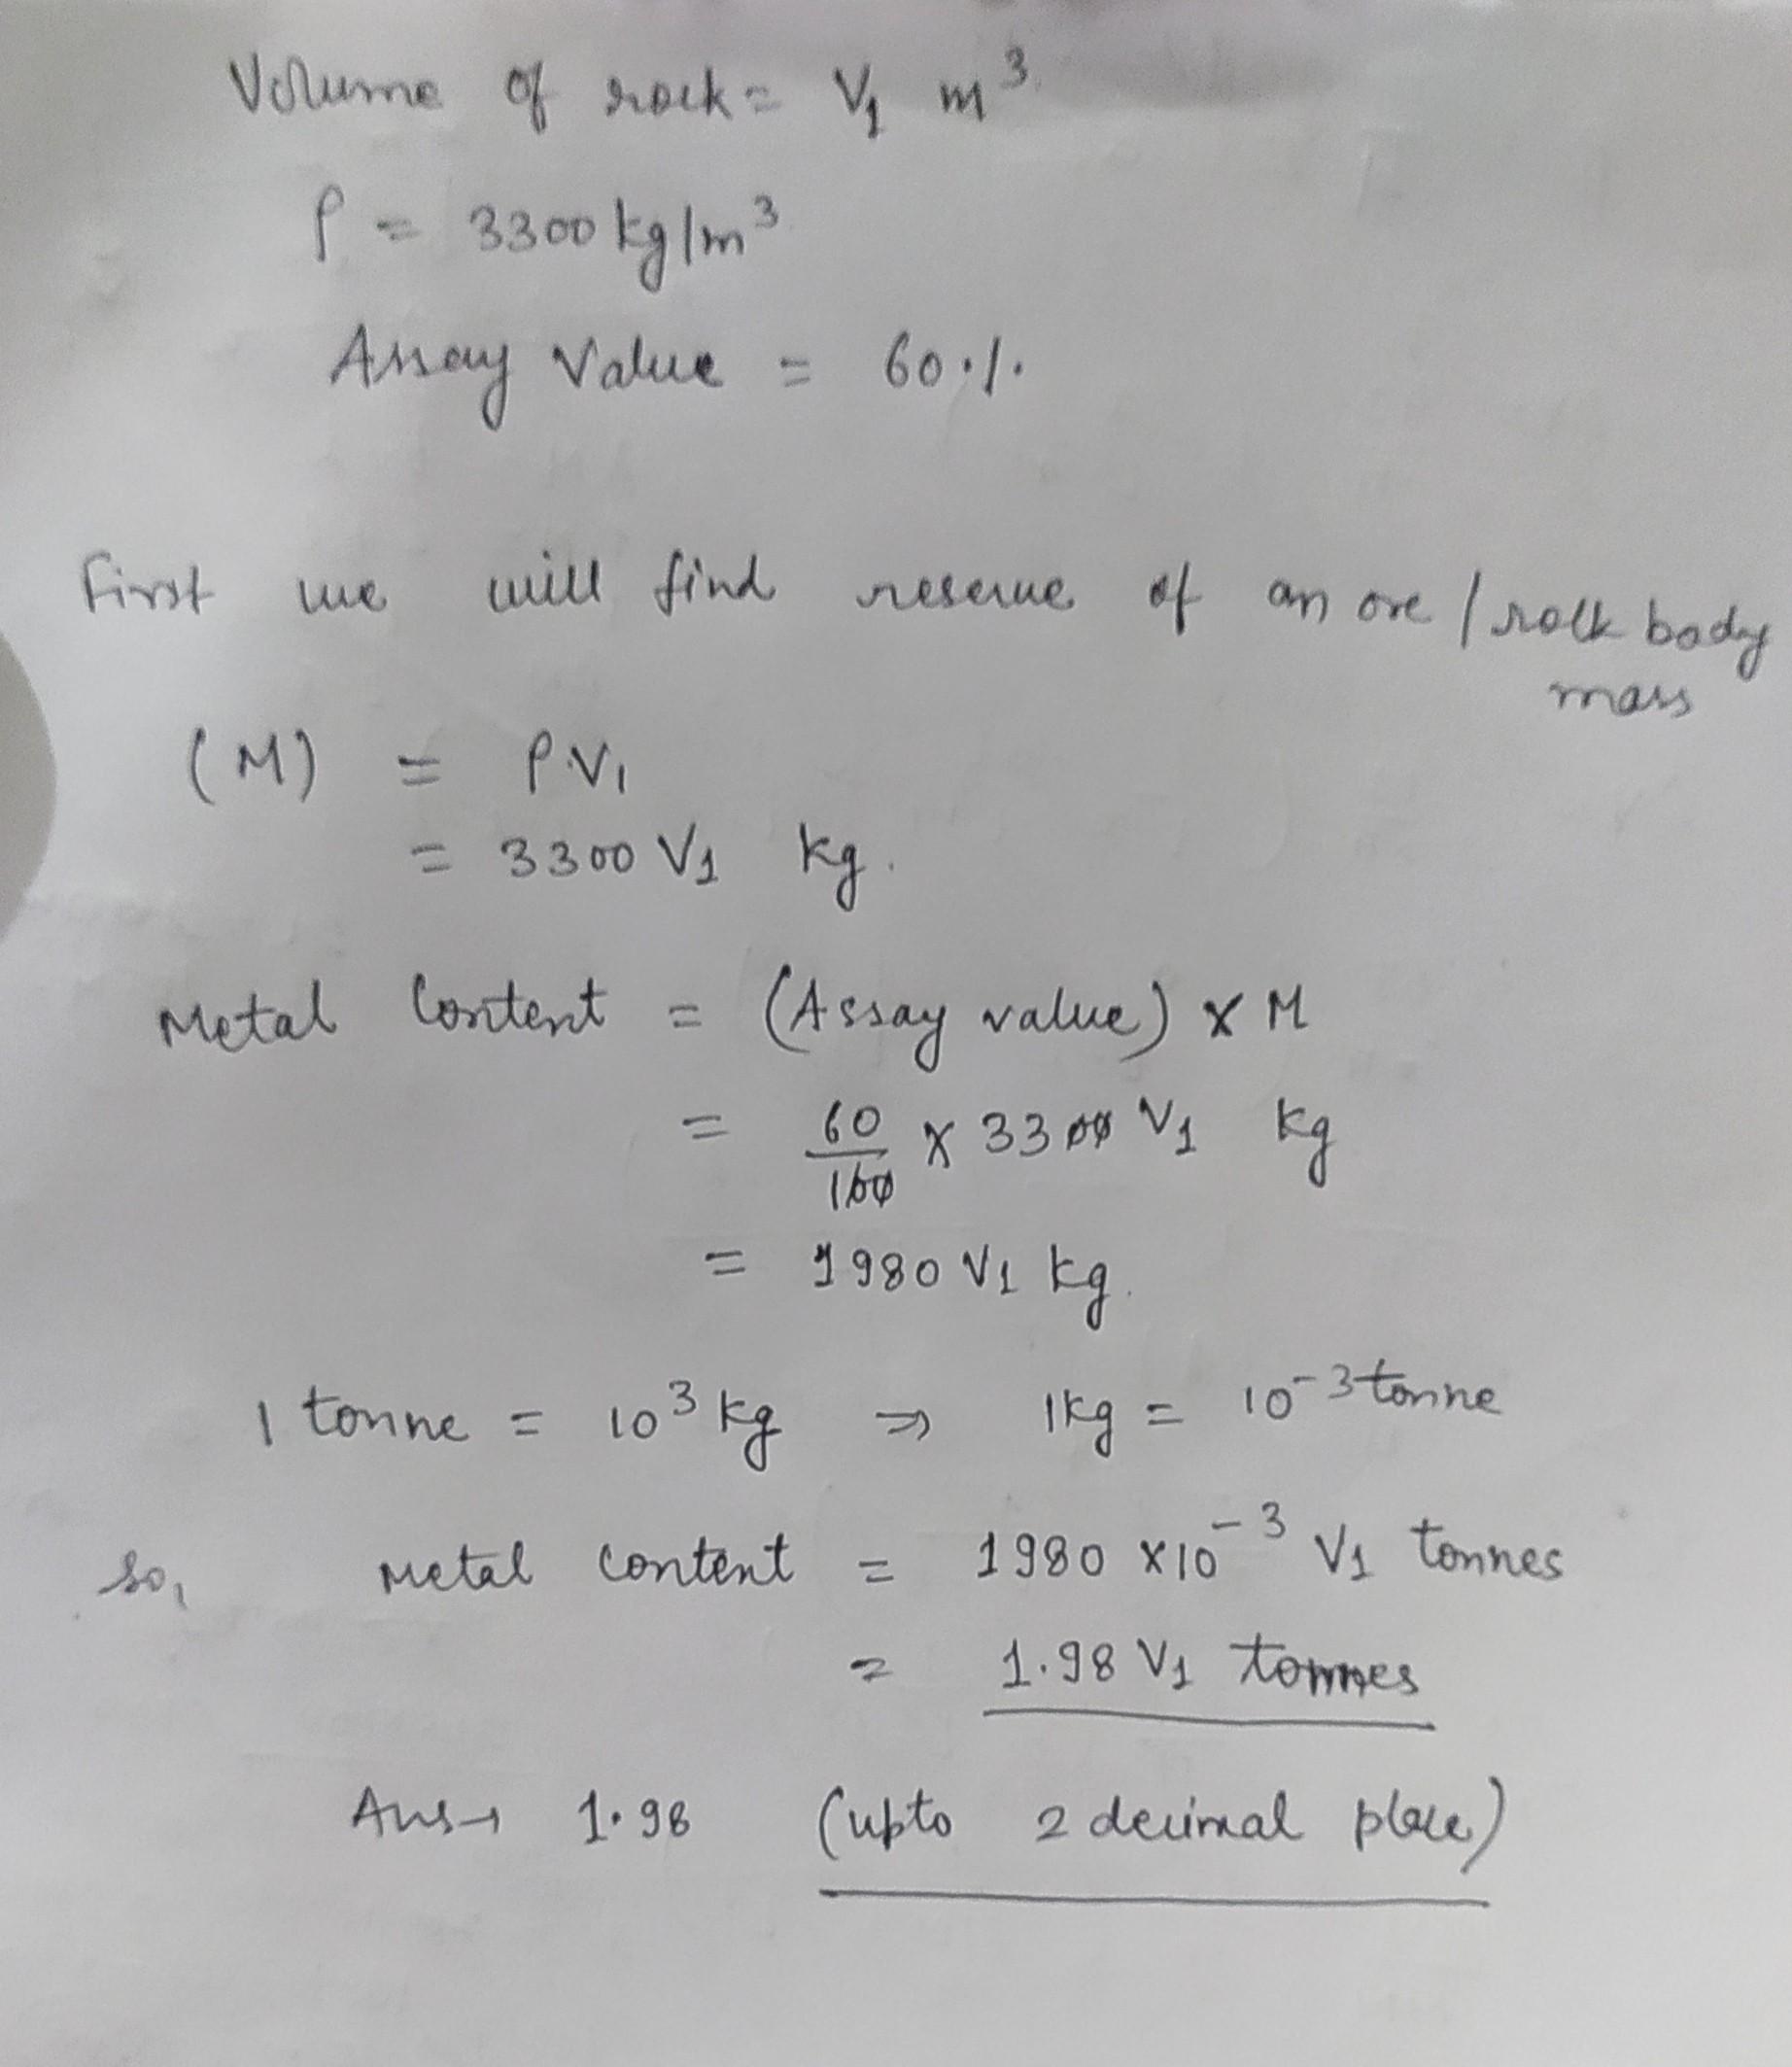 Volume of rock = V₁ m³
ρ = 3300 kg/m³
Assay Value = 60%
First we will find reserve of an ore / rock body
mass
(M) = ρ.V₁
= 3300 V₁ kg.
Metal Content = (Assay value) x M
= 60/100 x 3300 V₁ kg
= 1980 V₁ kg.
1 tonne = 10³ kg ⇒ 1kg = 10⁻³ tonne
So, Metal Content = 1980 x10⁻³ V₁ tonnes
= 1.98 V₁ tonnes
Ans → 1.98 (upto 2 decimal place)